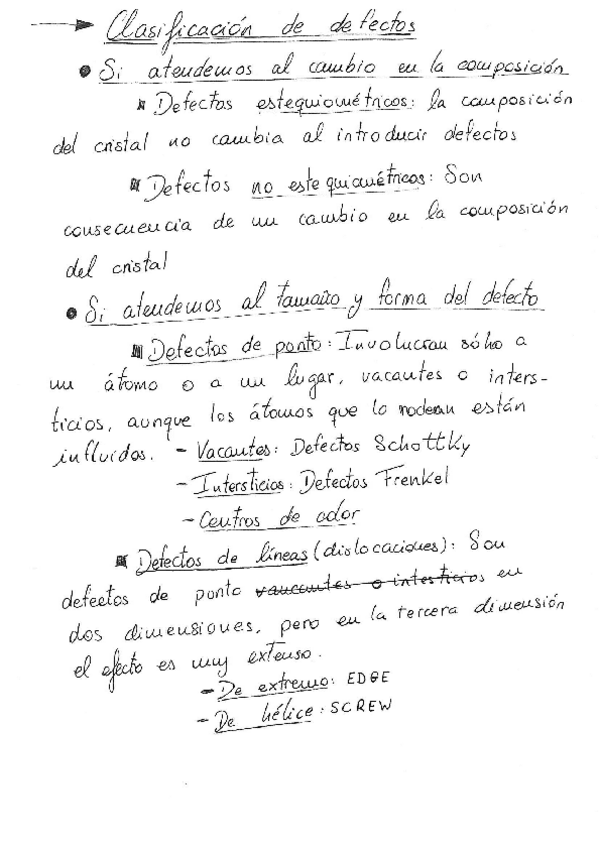 → Clasificación de defectos
• Si atendemos al cambio en la composición
▪ Defectos estequiométricos: la composición
del cristal no cambia al introducir defectos
▪ Defectos no estequiométricos: Son
consecuencia de un cambio en la composición
del cristal
• Si atendemos al tamaño y forma del defecto
▪ Defectos de ponto: Involucran sólo a
un átomo o a un lugar, vacantes o inters-
ticios, aunque los átomos que lo rodean están
influidos. - Vacantes: Defectos Schottky
- Intersticios: Defectos Frenkel
- Centros de color
▪ Defectos de líneas (dislocaciones): Son
defectos de ponto vaucantes o intesticios en
dos dimensiones, pero en la tercera dimensión
el efecto es muy extenso.
- De extremo: EDGE
- De hélice: SCREW